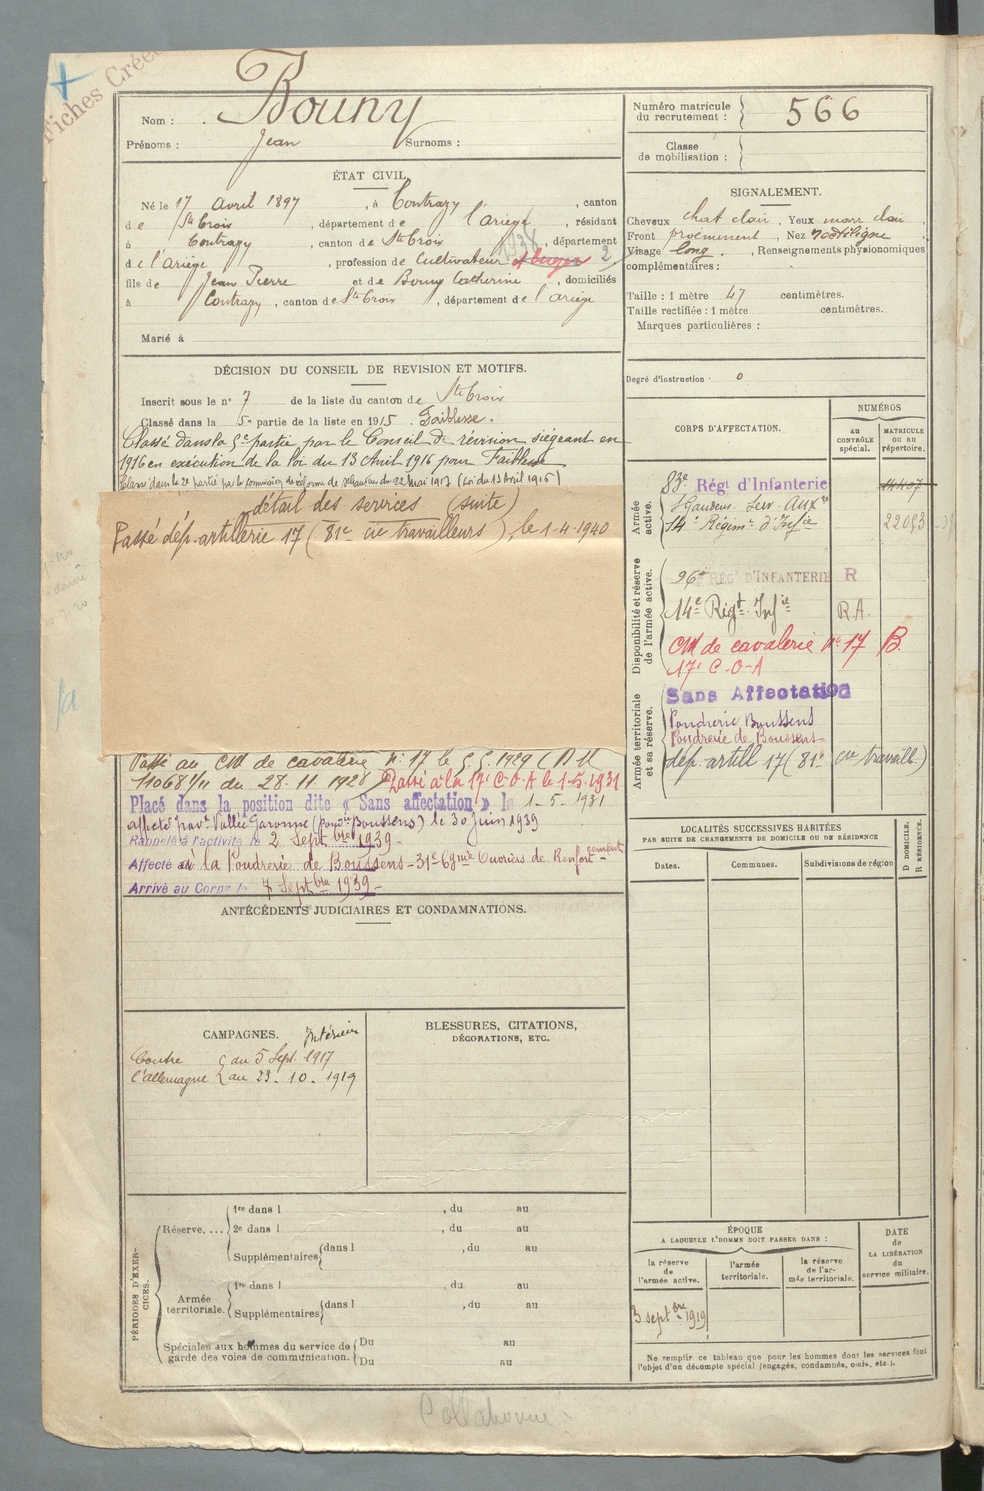 Fiches Créées
Nom : Bouny
Prénoms : Jean Surnoms :
Numéro matricule du recrutement : 566
Classe de mobilisation :
ÉTAT CIVIL.
Né le 17 avril 1897, à Contrazy, canton
de Ste Croix, département de l'ariège, résidant
à Contrazy, canton de Ste Croix, département
1938
de l'Ariège, profession de Cultivateur 2
fils de Jean Pierre et de Bouny Catherine, domiciliés
à Contrazy, canton de Ste Croix, département de l'ariège
Marié à
SIGNALEMENT.
Cheveux chat clair, Yeux marr clair,
Front proéminent, Nez rectiligne,
Visage long. , Renseignements physionomiques
complémentaires :
Taille : 1 mètre 47 centimètres.
Taille rectifiée : 1 mètre centimètres.
Marques particulières :
Degré d'instruction · 0
DÉCISION DU CONSEIL DE REVISION ET MOTIFS.
Inscrit sous le n° 7 de la liste du canton de Ste Croix
Classé dans la 5e partie de la liste en 1915. Faiblesse.
Classé dans la 5e partie, par le Conseil de révision siégeant en
1916 en exécution de la loi du 13 Avril 1916 pour Faiblesse
Classé dans la 2e partie par la commission de réforme de du 22 Mai 1917 (Loi du 13 Avril 1916)
détail des services (suite)
Passé dép. artillerie 17 (81e cie travailleurs), le 1-4-1940
Passé au CM de cavalerie N° 17 le 5.5.1929 (DM
11068 1/11 du 28.11.1928) Passé à la 17e C.O.A le 1-5-1931
Placé dans la position dite « Sans affectation » le 1-5-1931
affecté Vallée Garonne (poudrie Boussens) le 30 juin 1939
Rappelé à l'activité le 2 Septbre 1939-
Affecté à la Poudrerie de Boussens - 31e Cgnie Ouvriers de Renforcement-
Arrivé au Corps le 7 Septbre 1939-
CORPS D'AFFECTATION.
NUMÉROS
AU CONTRÔLE spécial.
MATRICULE OU AU répertoire.
Armée active.
83e Régt d'Infanterie 14407
St Gaudens. Serv. Auxre
14e Régimt d'Infie 22093
Disponibilité et réserve de l'armée active.
96e RÉGt D'INFANTERIE R
14e Régt. Infie R.A.
CM de cavalerie N° 17 B.
17e C-O-A
Armée territoriale et sa réserve.
Sans Affectation
Poudrerie Boussens
Poudrerie de Boussens-
dép. artill 17 (81e cie travaill.)
LOCALITÉS SUCCESSIVES HABITÉES
PAR SUITE DE CHANGEMENTS DE DOMICILE OU DE RÉSIDENCE
Dates. Communes. Subdivisions de région
D DOMICILE. R RÉSIDENCE.
ANTÉCÉDENTS JUDICIAIRES ET CONDAMNATIONS.
CAMPAGNES. Intérieur
Contre du 5 Sept. 1917
l'allemagne au 23. 10. 1919
BLESSURES, CITATIONS,
DÉCORATIONS, ETC.
PÉRIODES D'EXERCICES.
Réserve....
1re dans l , du au
2e dans l , du au
Supplémentaires dans l , du au
Armée territoriale.
1re dans l , du au
Supplémentaires dans l , du au
Spéciales aux hommes du service de
garde des voies de communication.
Du au
Du au
ÉPOQUE
A LAQUELLE L'HOMME DOIT PASSER DANS :
la réserve de l'armée active.
l'armée territoriale.
la réserve de l'armée territoriale.
DATE de LA LIBÉRATION du service militaire.
3 septbre 1919
Ne remplir ce tableau que pour les hommes dont les services font
l'objet d'un décompte spécial (engagés, condamnés, omis, etc.).